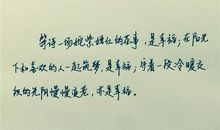 等待一场姹紫嫣红的花事，是幸福；在阳光
下和喜欢的人一起筑梦，是幸福；守着一段冷暖交
织的光阴慢慢变老，亦是幸福。